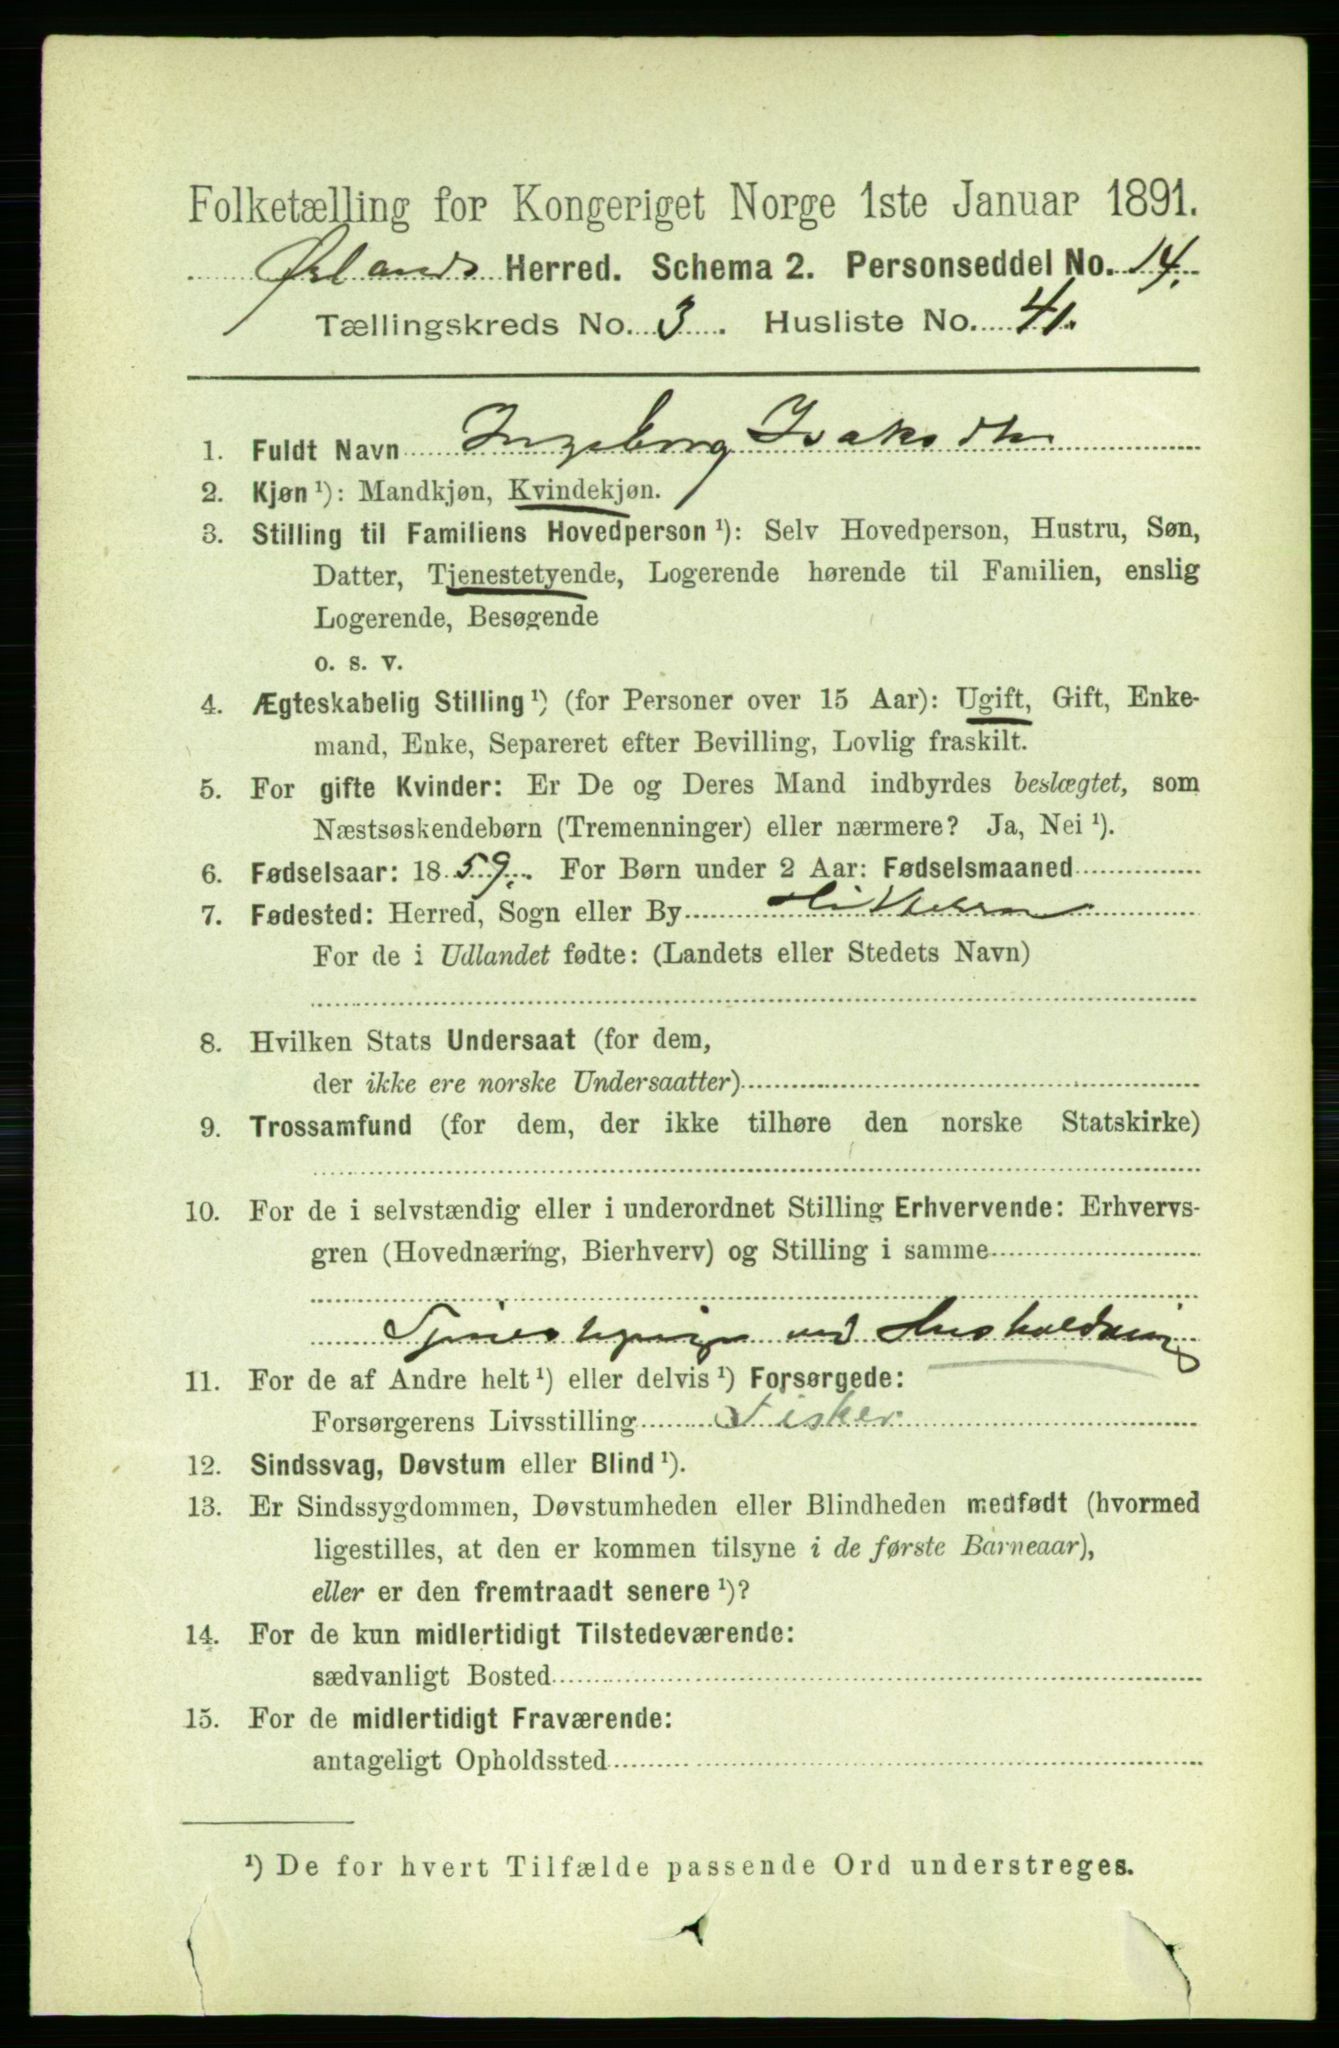 Folketælling for Kongeriget Norge 1ste Januar 1891.
Ørlands Herred. Schema 2. Personseddel No. 14.
Tællingskreds No. 3. Husliste No. 41.
1. Fuldt Navn Ingeborg Isaksdtr
2. Kjøn ¹): Mandkjøn, Kvindekjøn.
3. Stilling til Familiens Hovedperson ¹): Selv Hovedperson, Hustru, Søn,
Datter, Tjenestetyende, Logerende hørende til Familien, enslig
Logerende, Besøgende
o. s. v.
4. Ægteskabelig Stilling ¹) (for Personer over 15 Aar): Ugift, Gift, Enke-
mand, Enke, Separeret efter Bevilling, Lovlig fraskilt.
5. For gifte Kvinder: Er De og Deres Mand indbyrdes beslægtet, som
Næstsøskendebørn (Tremenninger) eller nærmere? Ja, Nei ¹).
6. Fødselsaar: 1859. For Børn under 2 Aar: Fødselsmaaned
7. Fødested: Herred, Sogn eller By Hitteren
For de i Udlandet fødte: (Landets eller Stedets Navn)
8. Hvilken Stats Undersaat (for dem,
der ikke ere norske Undersaatter)
9. Trossamfund (for dem, der ikke tilhøre den norske Statskirke)
10. For de i selvstændig eller i underordnet Stilling Erhvervende: Erhvervs-
gren (Hovednæring, Bierhverv) og Stilling i samme
ved Husholdning
11. For de af Andre helt ¹) eller delvis ¹) Forsørgede:
Forsørgerens Livsstilling Fisker
12. Sindssvag, Døvstum eller Blind ¹).
13. Er Sindssygdommen, Døvstumheden eller Blindheden medfødt (hvormed
ligestilles, at den er kommen tilsyne i de første Barneaar),
eller er den fremtraadt senere ¹)?
14. For de kun midlertidigt Tilstedeværende:
sædvanligt Bosted
15. For de midlertidigt Fraværende:
antageligt Opholdssted
¹) De for hvert Tilfælde passende Ord understreges.